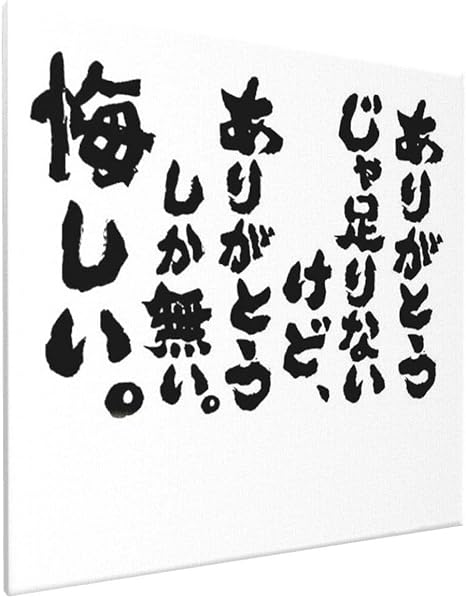 ありがとう
じゃ足りない
けど、
ありがとう
しか無い。
悔しい。